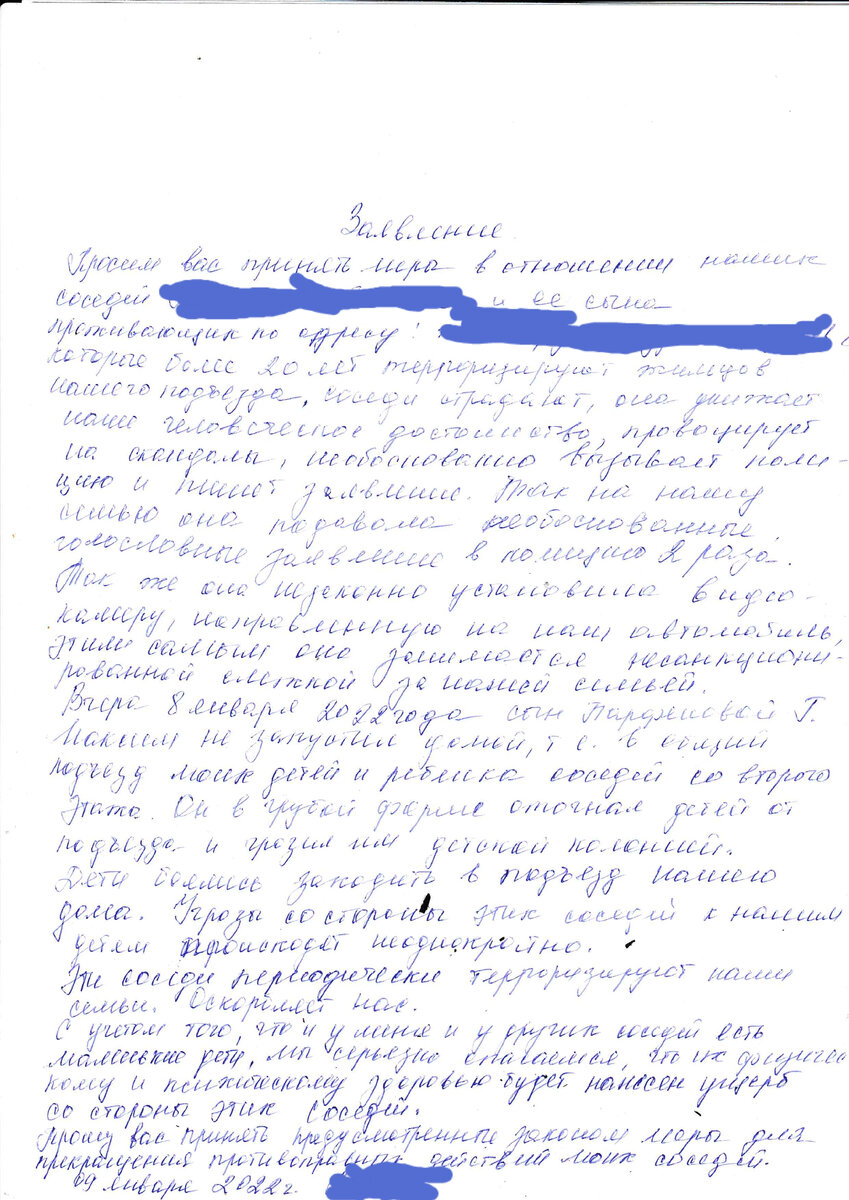 Заявление
Просим вас принять мера в отношении наших
соседей и ее сына
проживающих по адресу:
которые более 20 лет терроризируют жильцов
нашего подъезда, соседи страдают, она унижает
наше человеческое достоинство, провоцирует
на скандалы, необоснованно вызывает поли-
цию и пишет заявление. Так на нашу
семью она подавала необоснованные
голословные заявление в полицию 2 раза.
Так же она незаконно установила видео-
камеру, направленную на наш автомобиль,
этим самым она занимается несанкциони-
рованной слежкой за нашей семьей.
Вчера 8 января 2022 года сын Г.
Максим не запустил домой, т.е. в общий
подъезд моих детей и ребенка соседей со второго
этажа. Он в грубой форме отогнал детей от
подъезда и грозил им детской колонией.
Дети боялись заходить в подъезд нашего
дома. Угрозы со стороны этих соседей к нашим
детям происходят неоднократно.
Эти соседи периодически терроризируют наши
семьи. Оскорбляет нас.
С учетом того, что и у меня и у других соседей есть
маленькие дети, мы серьезно опасаемся, что их физичес-
кому и психическому здоровью будет нанесен ущерб
со стороны этих соседей.
Прошу вас принять предусмотренные законом меры для
прекращения противоправных действий моих соседей.
09 января 2022 г.